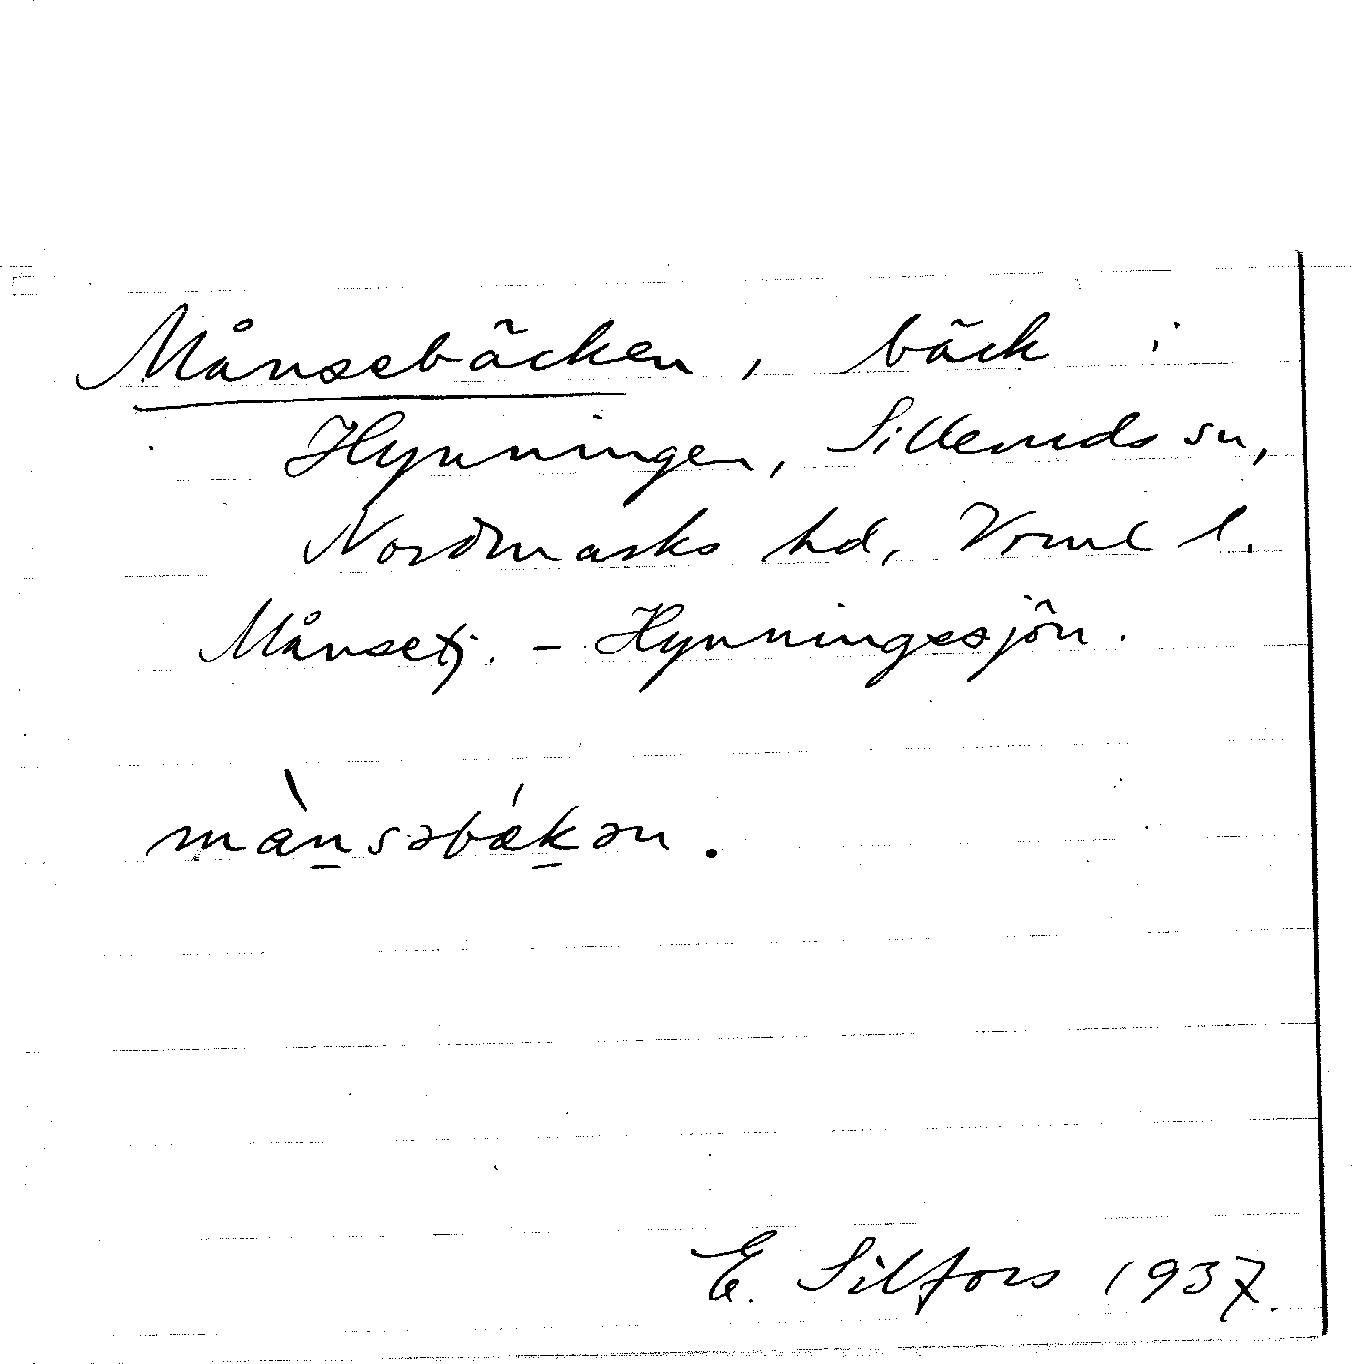 Månsebäcken, bäck i
Hynningen, Silleruds sn,
Nordmarks hd, Vrml l.
Månsetj. - Hynningssjön.
mànsəbǽkən.
E. Silfors 1937.